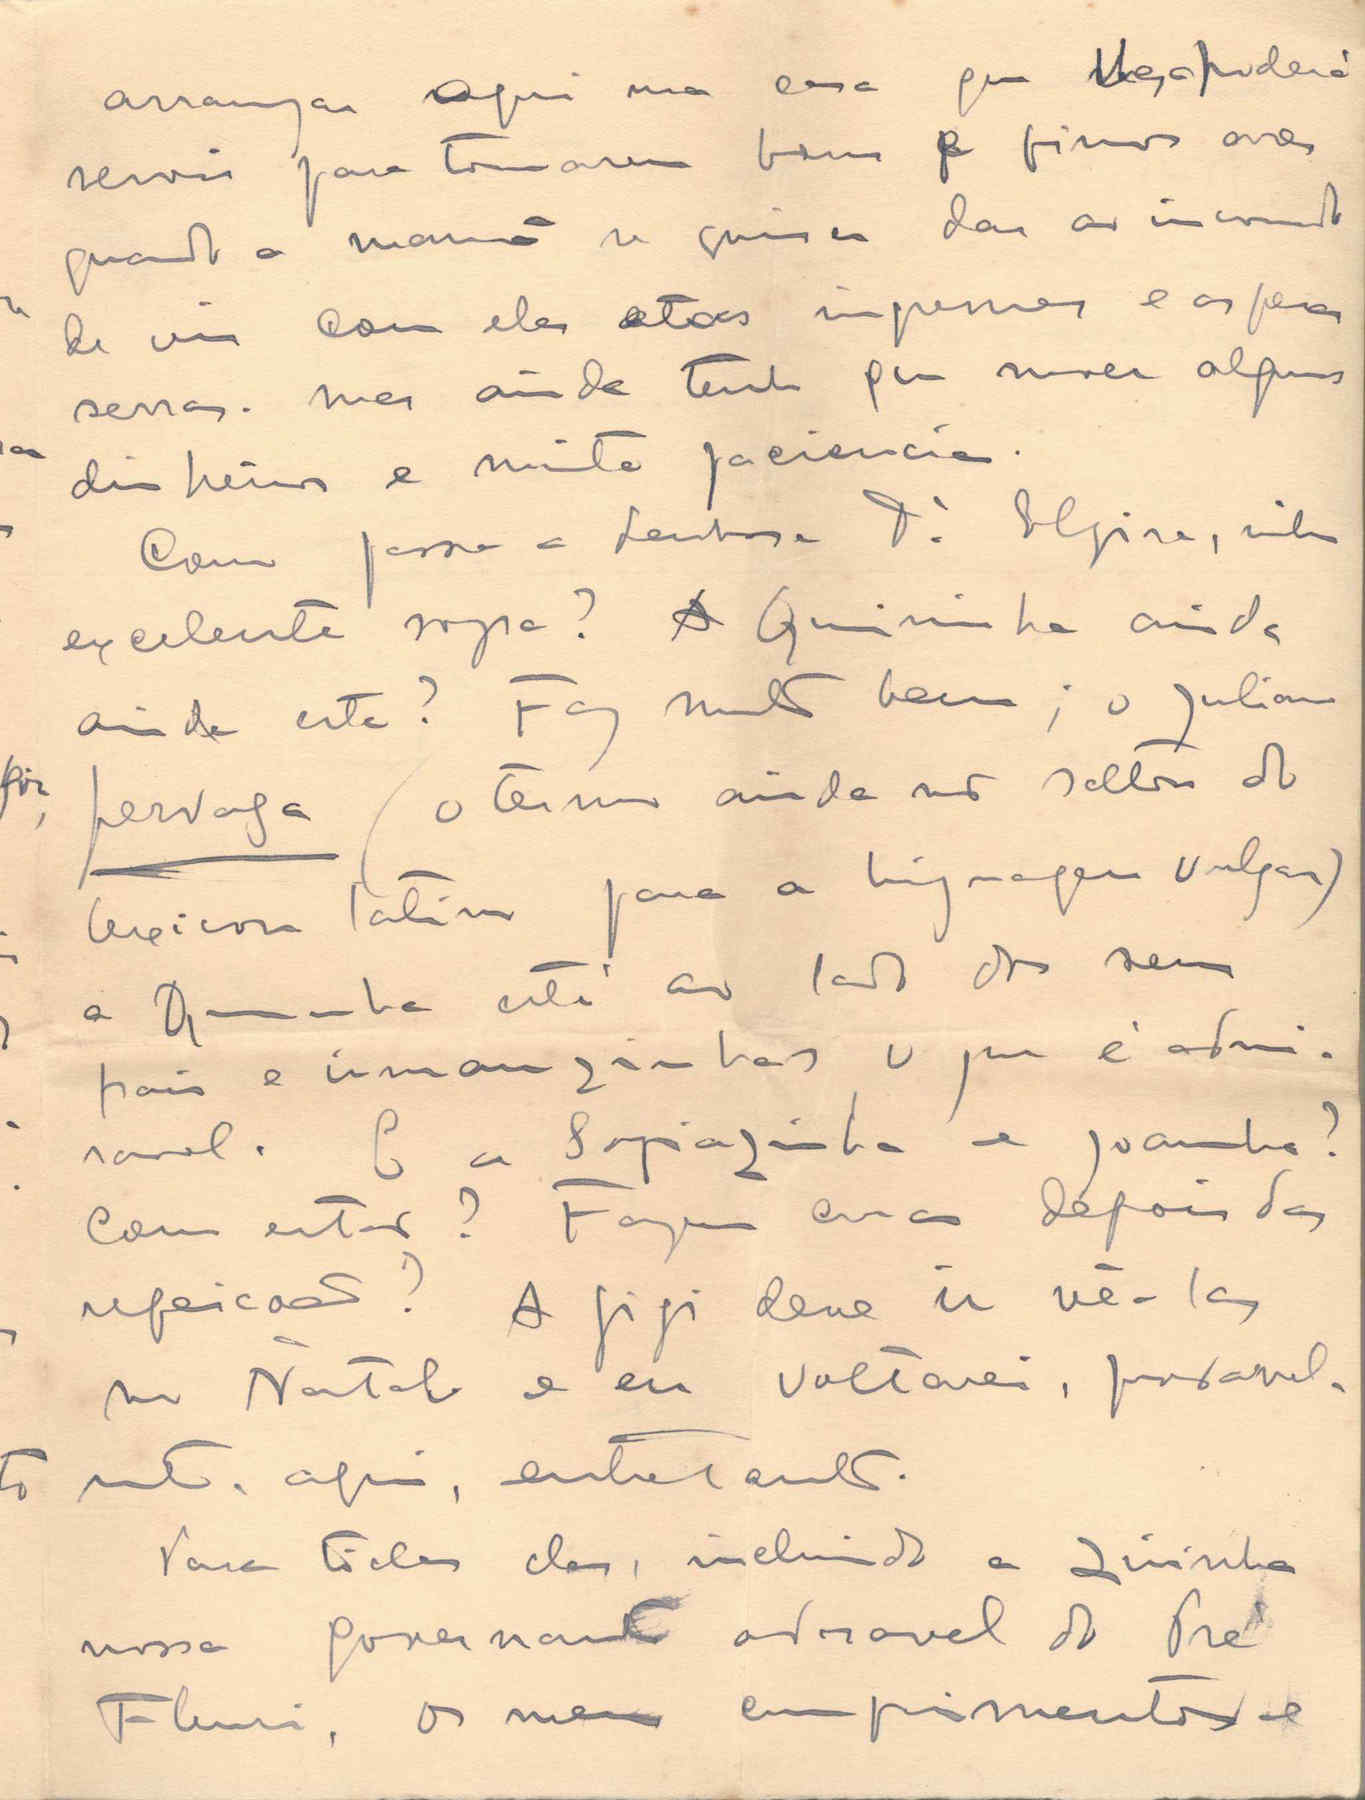 arranjar aqui uma casa que lhes poderá
servir para tomarem bons e finos ares
quando a mamã se quiser dar ao incomodo
de vir com elas a estas ingremes e asperas
serras. mas ainda tenho que mover alguns
dinheiros e muita paciencia.
Como passa a bondosa D. Elzira, minha
excelente sogra? A Quininha ainda
ainda está? Faz muito bem; o Juliano
pervaga (o termo ainda não saltou do
lexicon latino para a linguagem vulgar)
a Quininha está ao lado dos seus
pais e irmanzinhas o que é admi-
ravel. E a Sofiazinha e Joaninha?
Como estão? Fazem cera depois das
refeicoes? A Gigi deve ir vê-las
no Natal e eu voltarei, provavel-
mente. aqui, entretanto.
Para todas elas, incluindo a Zizinha
nossa governante adoravel do Pré
Fleuri, os meus cumprimentos e